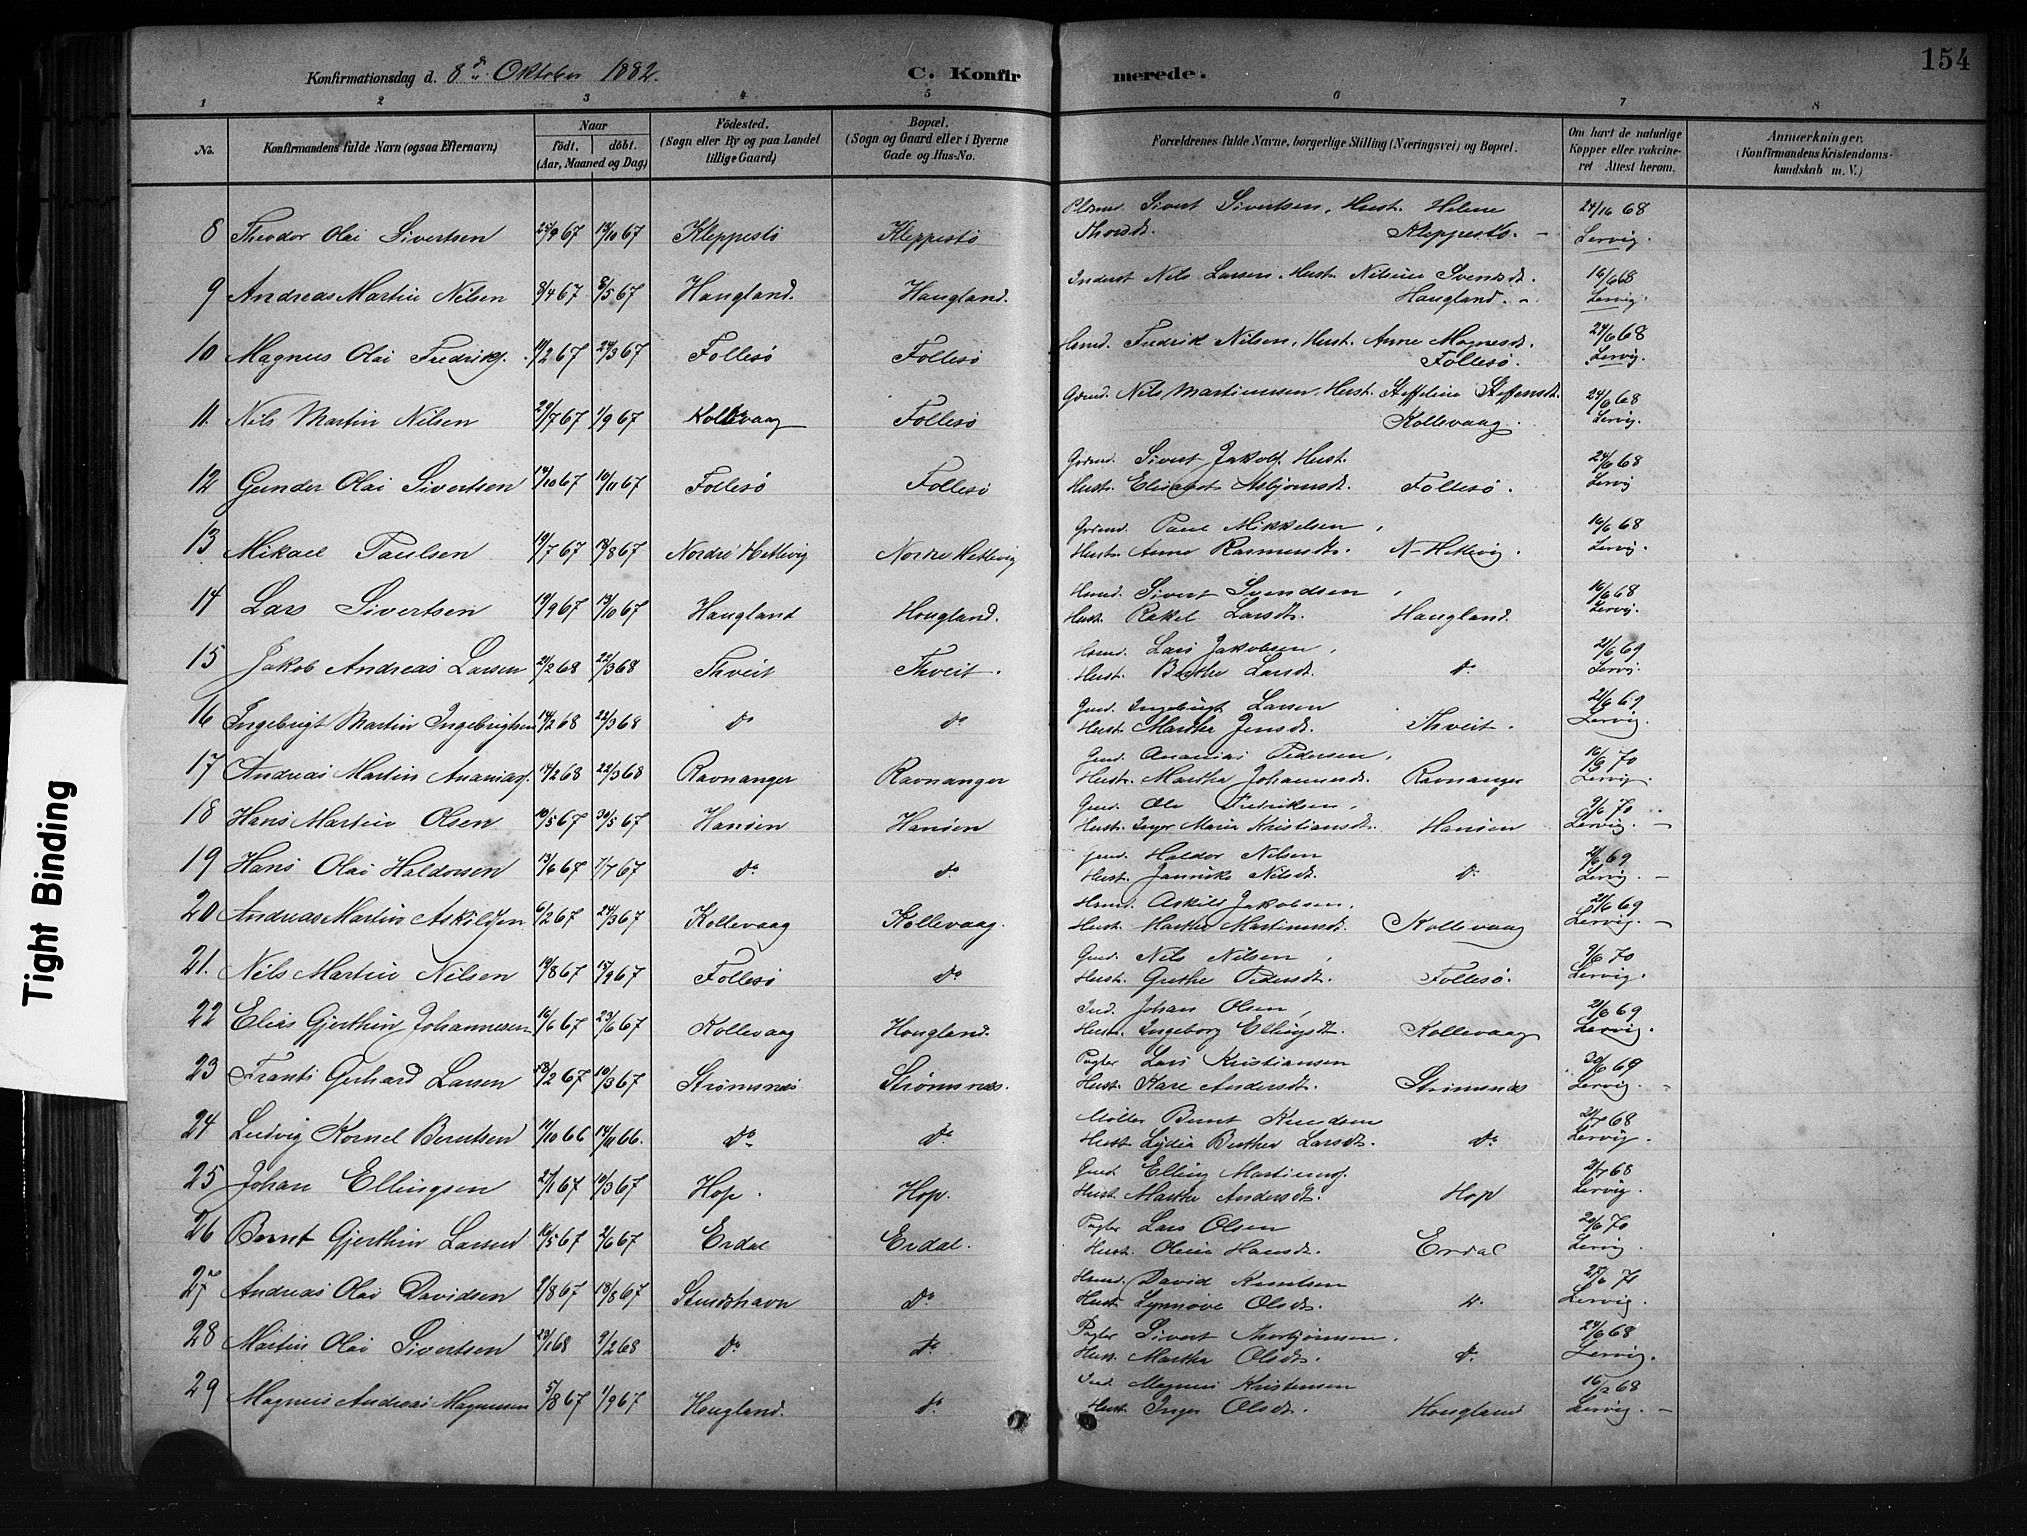 154
Konfirmationsdag d. 8de Oktober 1882. C. Konfirmerede.
1 2 3 4 5 6 7 8
No. Konfirmandens fulde Navn (ogsaa Efternavn) Naar födt. döbt. (Aar, Maaned og Dag) Födested. (Sogn eller By og paa Landet tillige Gaard) Bopæl. (Sogn og Gaard eller i Byerne Gade og Hus-No. Forældrenes fulde Navne, borgerlige Stilling (Næringsvei) og Bopæl. Om havt de naturlige Kopper eller vakcineret Attest herom. Anmærkninger. (Konfirmandens Kristendomskundskab m. V.)
8 Theodor Olai Sivertsen 13/10 67 Kleppestö Kleppestö Sivert Sivertsen, Hust. Helene Kleppestö. 68 Lervig.
9 Andreas Martin Nilsen 3/4 67 8/5 67 Haugland. Haugland. Inderst Nils Larsen, Hust. Nilsine Svensdt. Haugland. 16/6 68 Lervig.
10 Magnus Olai Fredriks. 24/3 67 Follesö Follesö Fredrik Nilsen, Hust. Anne Magnesdt. Follesö. 24/6 68 Lervig.
11. Nils Martin Nilsen 29/7 67 1/9 67 Kollevaag Follesö Nils Martinussen, Hust. Steffeline Steffensdt. Kollevaag. 24/6 68 Lervig.
12 Gunder Olai Sivertsen 14/10 67 10/11 67 Follesö Follesö Sivert Jakobs. Hust. Hust. Elisabet Asbjörnsdt. Follesö. 24/6 68 Lervig
13 Mikael Paulsen 19/7 67 18/8 67 Nordre Hetlevig Nordre Hetlevig Paul Mikkelsen, Hust. Anne Rasmusdt. N-Hetlevig. 16/6 68 Lervig.
14 Lars Sivertsen 19/9 67 13/10 67 Haugland Hougland. Sivert Svendsen, Hust. Rakel Larsdt. Haugland. 16/6 68 Lervig.
15 Jakob Andreas Larsen 21/2 68 22/3 68 Thveit Thveit. Lars Jakobsen, Hust. Berthe Larsdt. do. 21/6 69 Lervig
16 Ingebrigt Martin Ingebrigtsen 14/2 68 22/3 68 do do Gmd. Ingebrigt Larsen Hust. Marthe Jensdt. Thveit. 21/6 69 Lervig.
17 Andreas Martin Ananias. 14/2 68 22/3 68 Ravnanger Ravnanger Gmd. Ananias Pedersen, Hust. Martha Johannesdt. Ravnanger 70 Lervig.
18 Hans Martin Olsen 10/5 67 30/5 67 Hansen Hansen Gmd. Ole Fredriksen, Hust. Inger Maria Kristiansdt. Hansen 9/6 70 Lervig.
19 Hans Olai Haldorsen 13/6 67 7/7 67 do do. Gmd. Haldor Nilsen Hust. Jannike Nilsdt. do. 21/6 69 Lervig.
20 Andreas Martin Askildsen 6/2 67 24/3 67 Kollevaag Kollevaag. Askild Jakobsen. Hust. Marthe Martinusdt. Kollevaag 21/6 69 Lervig.
21. Nils Martin Nilsen 19/8 67 15/9 67 Follesö do Gmd. Nils Nilsen, Hust. Grethe Pedersdt. Follesö. 9/6 70 Lervig.
22 Elias Gjerthin Johannesen 16/6 67 23/6 67 Kollevaag Hougland. Ind. Johan Olsen, Hust. Ingeborg Ellingsdt. Kollevaag 21/6 69 Lervig.
23 Frants Gerhard Larsen 13/2 67 10/3 67 Strömsnes Strömsnes. Pagter Lars Kristiansen Hust. Kare Andersdt. Strömsnes 69 Lervig.
24 Ludvig Kornel Berntsen 14/11 66. do do Möller Bernt Knudsen Hust. Lydia Berthea Larsdt. do 68 Lervig.
25 Johan Ellingsen 27/1 67 10/3 67 Hop. Hop. Gmd. Elling Martinus. Hust. Marthe Andersdt. Hop 68 Lervig.
26 Bernt Gjerthin Larsen 10/5 67 2/6 67 Erdal Erdal. Pagter Lars Olsen Hust. Oline Hansdt. Erdal 20/6 70 Lervig.
27 Andreas Olai Davidsen 2/8 67 18/8 67 Steinshavn do David Knudsen Hust. Synnöve Olsdt. do 71 Lervig.
28 Martin Olai Sivertsen 23/1 68 9/2 68 do do Pagter Sivert Thorbjörnsen. Hust. Marthe Olsdt. do. 24/6 68 Lervig.
29 Magnus Andreas Magnusen 5/8 67 1/9 67 Hougland. do. Ind. Magnus Kristensen Hust. Inger Olsdt. Hougland 68 Lervig.
Tight Binding